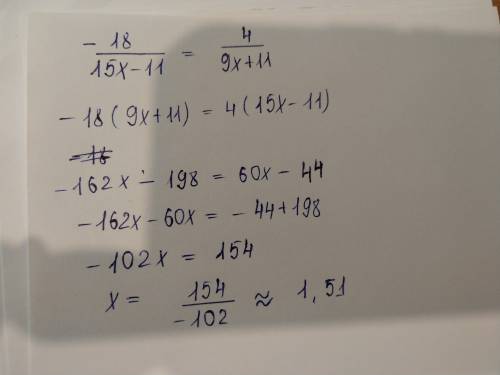 - 18/(15x-11) = 4/(9x+11)
-18(9x+11) = 4(15x-11)
-18
-162x - 198 = 60x - 44
-162x - 60x = -44+198
-102x = 154
x = 154/-102 ≈ 1,51